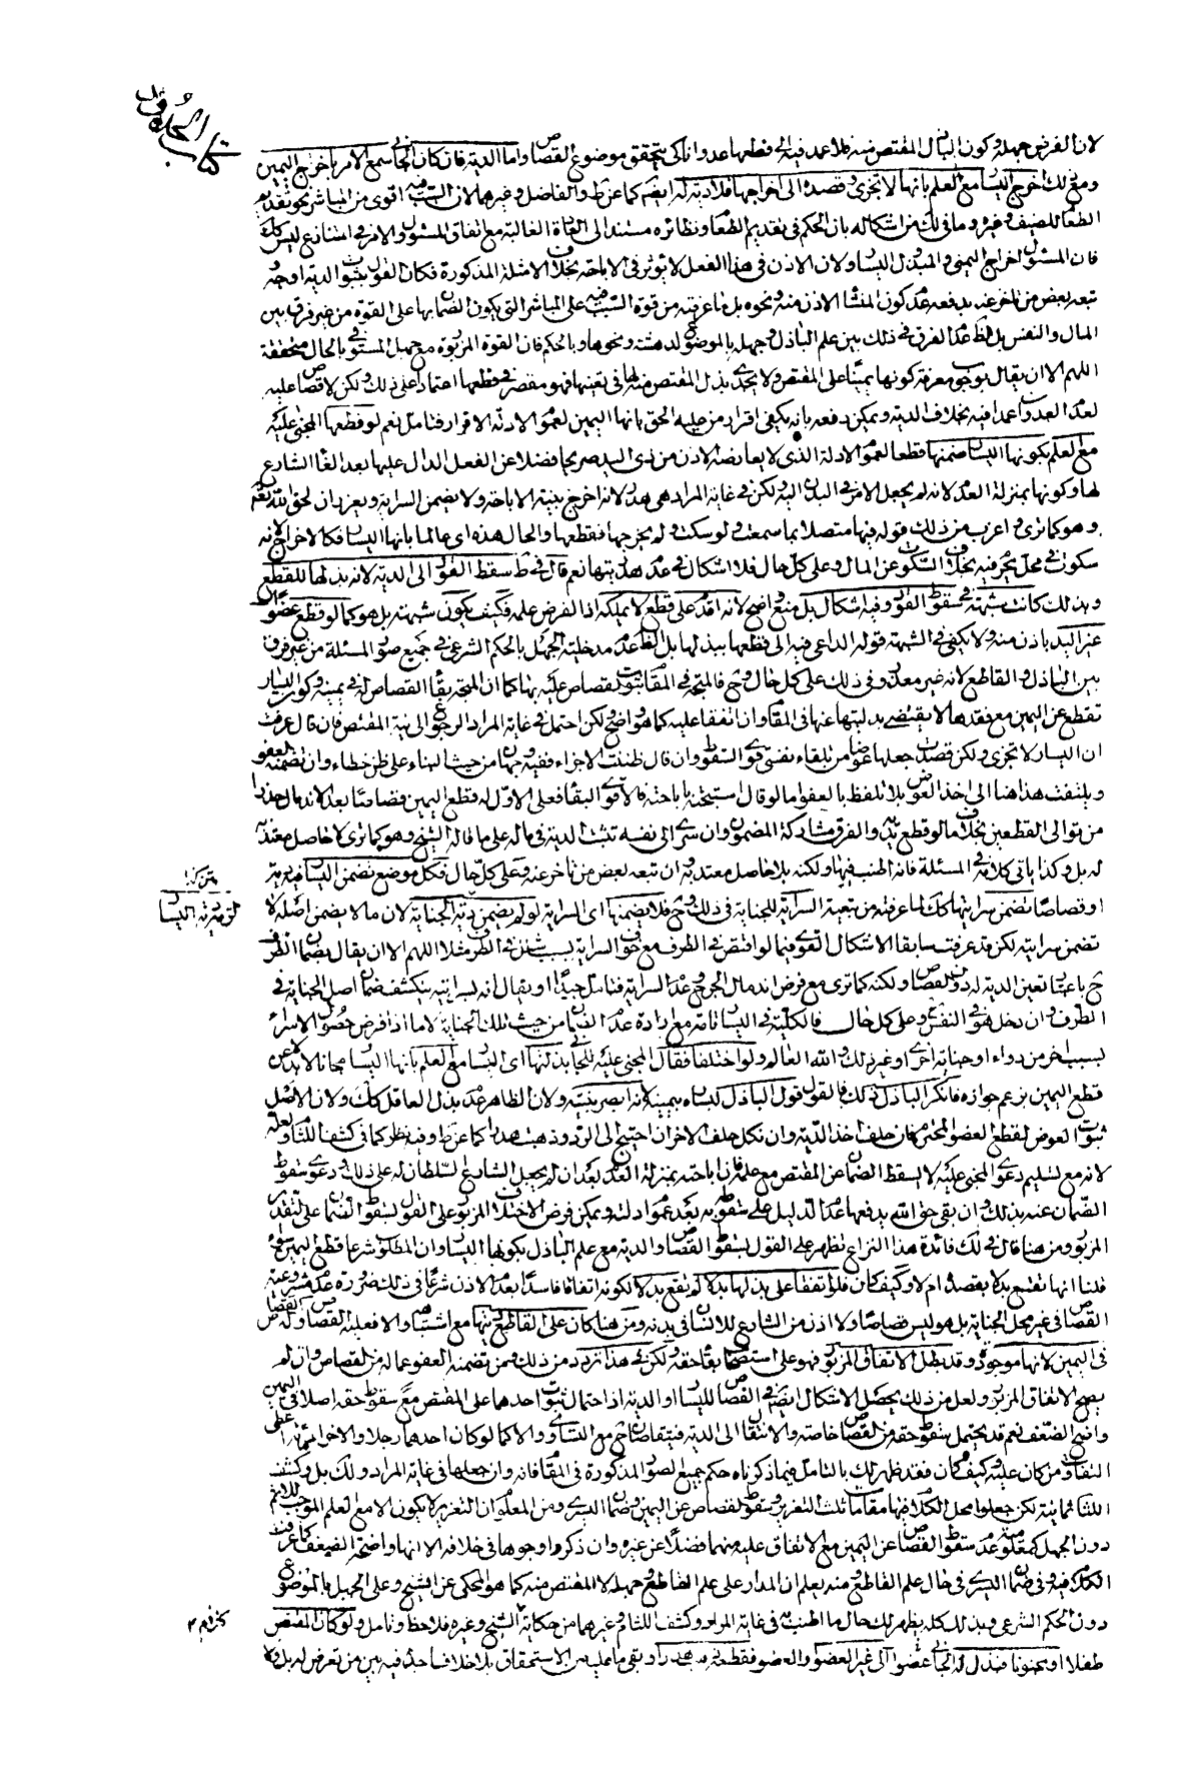 كتاب الحدود
لان الفرض جهله وكون الباذل المقتص منه فلا عمد فيه الى قطعها عدوانا كى يتحقق موضوع القصاص واما الدية فان كان الجانى سمع الامر باخراج اليمين
ومع ذلك اخرج اليسار مع العلم بانها لا تجزى وقصده الى اخراجها فلا دية له ايضا كما عن ط والفاضل وغيرهما لان السبب فيه اقوى من المباشر نحو تقديم
الطعام للضيف وغيره وما فى لك من اشكاله بان الحكم فى تقديم الطعام ونظائره مستند الى العادة الغالبة مع اتفاق المسئول والامر فى المتنازع ليس كك
فان المسئول اخراج اليمنى والمبذول اليسار ولان الاذن فى هذا الفعل لا يؤثر فى الاباحة بخلاف الامثلة المذكورة فكان القول بثبوت الدية اوجه و
تبعه بعض من تاخر عنه يدفعه عدم كون المنشأ الاذن منه ونحوه بل ما عرفته من قوة السبب فيه على المباشر التى يكون الضمان بها على القوة من غير فرق بين
المال والنفس بل الظ عدم الفرق فى ذلك بين علم الباذل وجهله بالموضوع لدهشته ونحوها وبالحكم فان القوة المزبورة مع جهل المستوفى بالحال متحققة
اللهم الا ان يقال بوجوب معرفة كونها يمينا على المقتص ولا يجدى بذل المقتص منه لها فى تعينها فهو مقصر فى قطعها اعتمادا على ذلك ولكن لا قصاص عليه
لعدم العدوان عمدا فيه بخلاف الدية ويمكن دفعه بانه يكفى اقرار من عليه الحق بانها اليمين لعموم الادلة الاقرار فتامل نعم لو قطعها المجنى عليه
مع العلم بكونها اليسار ضمنها قطعا لعموم الادلة الذى لا يعارضه الاذن من ذى اليد صريحا فضلا عن الفعل الدال عليها بعد الغاء الشارع
لها وكونها بمنزلة العدم لانه لم يجعل الامر فى البدن اليه ولكن فى غاية المراد هى هدر لانه اخرج بنية الاباحة ولا يضمن السراية ويعزران لحق الله تعالى
وهو كما ترى واغرب من ذلك قوله فيها متصلا بما سمعت ولو سكت ولم يخرجها فقطعها والحال هذه اى عالما بانها اليسار فكالاخراج لانه
سكوت فى محل يحرم فيه بخلاف السكوت عن المال وعلى كل حال فلا اشكال فى عدم هدريتها نعم قال فى ط سقط القود الى الدية لانه بذلها للقطع
وبذلك كانت شبهة فى سقوط القود وفيه اشكال بل منع واضح لانه اقدم على قطع ما لا يملكه اذا الفرض علمه فكيف يكون شبهة بل هو كما لو قطع عضوا
غير اليد باذن منه ولا يكفى فى الشبهة قوله الداعى فيه الى قطعها ببذلها بل الظ عدم مدخلية الجهل بالحكم الشرعى فى جميع صور المسئلة من غير فرق
بين الباذل والقاطع لانه غير معذور فى ذلك على كل حال وح فالمتجه فى المقام ثبوت القصاص عليه بها كما ان المتجه بقاء القصاص له فى يمينه وكون اليسار
تقطع عن اليمين مع فقدها لا يقتضى بدليتها عنها فى المقام وان اتفقا عليه كما هو واضح لكن احتمل فى غاية المراد الرجوع الى نية المقتص فان قال عرفت
ان اليسار لا تجزى ولكن قصدت جعلها عوضا من تلقاء نفسى قوى السقوط وان قال ظننت الاجزاء ففيه وجهان من حيث البناء على ظن خطاء وان تضمنه العفو
ويلتفت هذا هنا الى اخذ العوض بلا تلفظ بالعفو اما لو قال استبحته باباحته فالاقوى البقاء فعلى الاول له قطع اليمين قصاصا بعد الاندمال حذرا
من توالى القطعين بخلاف ما لو قطع يديه والفرق مشاركة المضمون وان سرى الى نفسه تثبت الدية فى ماله على ما قاله الشيخ وهو كما ترى لا حاصل معتد به
له بل وكذا باقى كلامه فى المسئلة فانه اطنب فيها ولكنه بلا حاصل معتد به وان تبعه بعض من تاخر عنه وعلى كل حال فكل موضع تضمن اليسار فيه بدية
او قصاصا تضمن سرايتها كك لما عرفته من تبعية السراية للجناية فى ذلك وح فلا يضمنها اى السراية لو لم يضمن دية الجناية لان ما لا يضمن اصله لا
تضمن سرايته لكن قد عرفت سابقا الاشكال القوى فيما لو اقتص فى الطرف مع خوف السراية بسبب شلل فى الطرف مثلا اللهم الا ان يقال بضمان الطرف
ح باعتبار تعين الدية له دون القصاص ولكنه كما ترى مع فرض اندمال الجرح وعدم السراية فتامل جيدا او يقال انه لسرايته ينكشف ضمان اصل الجناية فى
الطرف وان دخل هو فى النفس وعلى كل حال فالكلية فى اليسار تامة مع ارادة عدم الضمان من حيث تلك الجناية لا ما اذا فرض حصول الاسراء
بسبب اخر من دواء او جناية اخرى او غير ذلك والله العالم ولو اختلفا فقال المجنى عليه للجانى بذلتها اى اليسار مع العلم بانها اليسار مجانا لا بدلا عن
قطع اليمين بزعم جوازه فانكر الباذل ذلك فالقول قول الباذل ليساره بيمينه لانه ابصر بنيته ولان الظاهر عدم بذل العاقل كك ولان الاصل
ثبوت العوض لقطع العضو المحترم فان حلف اخذ الدية وان نكل حلف الاخر ان احتيج الى الرد وذهبت هدرا كما عن ط وفيه نظر كما فى كشف اللثام ولعله
لانه مع تسليم دعوى المجنى عليه لا يسقط الضمان عن المقتص مع علمه فان اباحته بمنزلة العدم بعد ان لم يجعل الشارع السلطان له على ذلك ودعوى سقوط
الضمان عنه بذلك وان بقى حق الله يدفعها عدم الدليل على سقوطه به بعد عموم ادلته ويمكن فرض الاختلاف المزبور على القول بسقوط الضمان على التقدير
المزبور ومن هنا قال فى لك فائدة هذا النزاع تظهر على القول بسقوط القصاص والدية مع علم الباذل بكونها اليسار وان المطلوب شرعا قطع اليمين سواء
قلنا انها تقع بدلا بقصده ام لا وكيف كان فلو اتفقا على بذلها بدلا لم يقع بدلا لكونه اتفاقا فاسدا بعد عدم الاذن شرعا فى ذلك ضرورة عدم مشروعية
القصاص فى غير محل الجناية بل هو ليس قصاصا ولا اذن من الشارع للانسان فى بدنه ومن هنا كان على القاطع ديتها مع اشتباهه والا فعليه القصاص وله القصاص
فى اليمين لانها موجودة وقد بطل الاتفاق المزبور فهو على استصحاب بقاء حقه ولكن فى هذا تردد من ذلك ومن تضمنه العفو عما له من القصاص وان لم
يصح الاتفاق المزبور ولعل من ذلك يحصل الاشكال ايضا فى القصاص لليسار او الدية اذ احتمال ثبوت احدهما على المقتص مع سقوط حقه اصلا فى اليمين
واضح الضعف نعم قد يحتمل سقوط حقه من القصاص خاصة والانتقال الى الدية فيتقاصان ح مع التساوى والا كما لو كان احدهما رجلا والاخر امرئة اخذ
التفاوت من كان عليه وكيف كان فقد ظهر لك بالتامل فيما ذكرناه حكم جميع الصور المذكورة فى المقام فانه وان جعلها فى غاية المراد ولك بل وكشف
اللثام ثمانية لكن جعلوا محل الكلام فيها مقامات ثلث التعزير وسقوط القصاص عن اليمين وضمان اليسرى ومن المعلوم ان التعزير لا يكون الا مع العلم الموجب للاثم
دون الجهل كمعلومية عدم سقوط القصاص عن اليمين مع الاتفاق عليه منهما فضلا عن غيره وان ذكروا وجوها فى خلافه الا انها واضحة الضعف كما عرفت
الكلام فيه وفى ضمان اليسرى فى حال علم القاطع ومنه يعلم ان المدار على علم القاطع وجهله لا المقتص منه كما هو المحكى عن الشيخ وعلى الجهل بالموضوع
دون الحكم الشرعى وبذلك كله يظهر لك حال ما اطنب فى غاية المراد وكشف اللثام وغيرهما من حكاية الشيخ وغيره فلاحظ وتامل ولو كان المقتص
طفلا او مجنونا فبذل له الجانى عضوا اى غير العضو والعضو فقطعه ذهب هدرا وبقى ما عليه من الاستحقاق بلا خلاف اجده فيه بين من تعرض له بل ولا